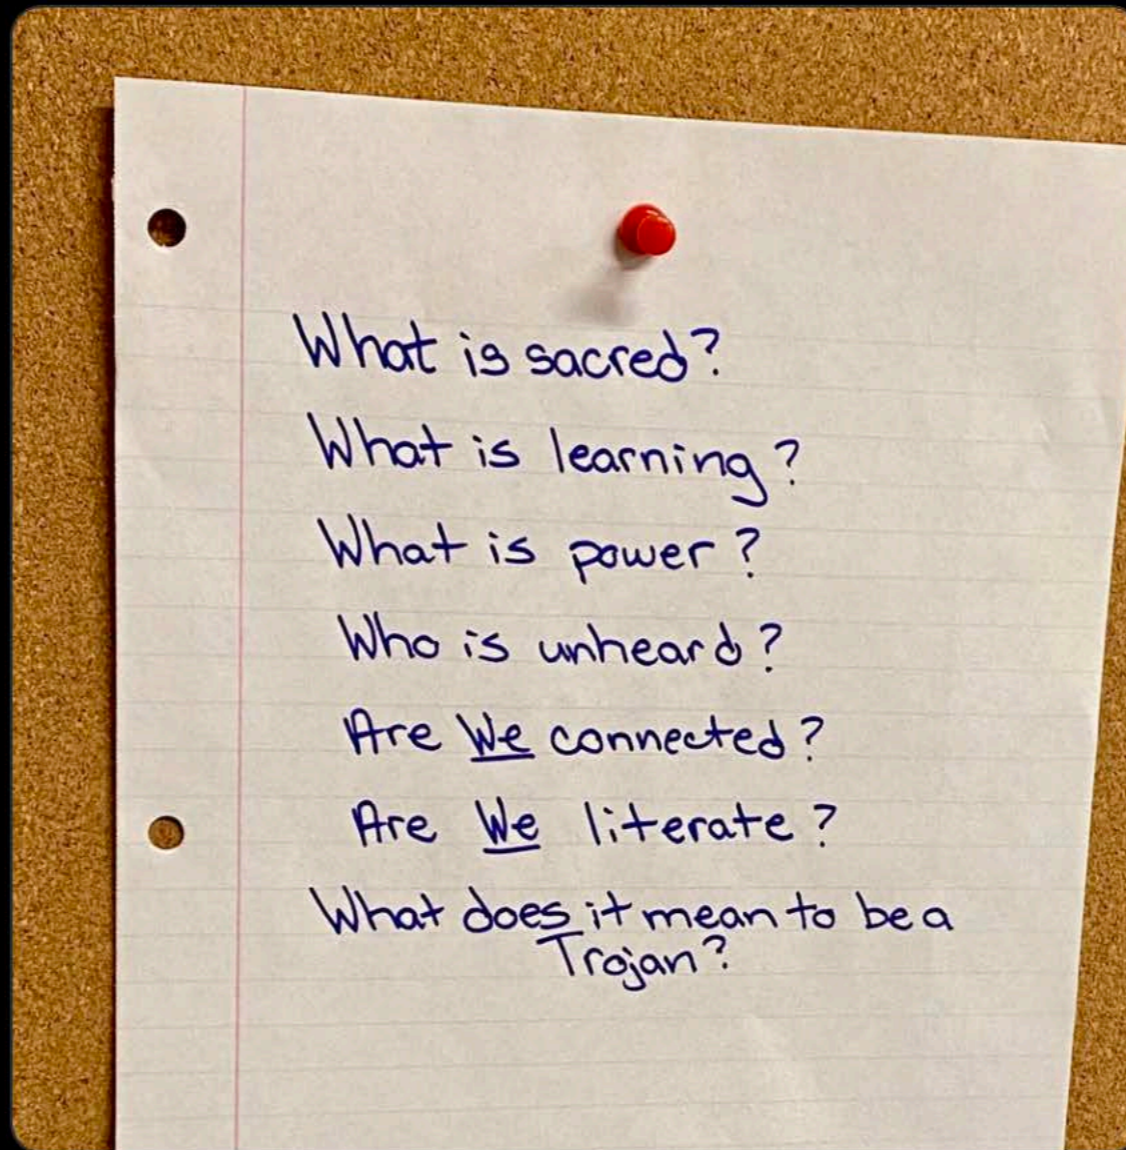 What is sacred?
What is learning?
What is power?
Who is unheard?
Are We connected?
Are We literate?
What does it mean to be a
Trojan?